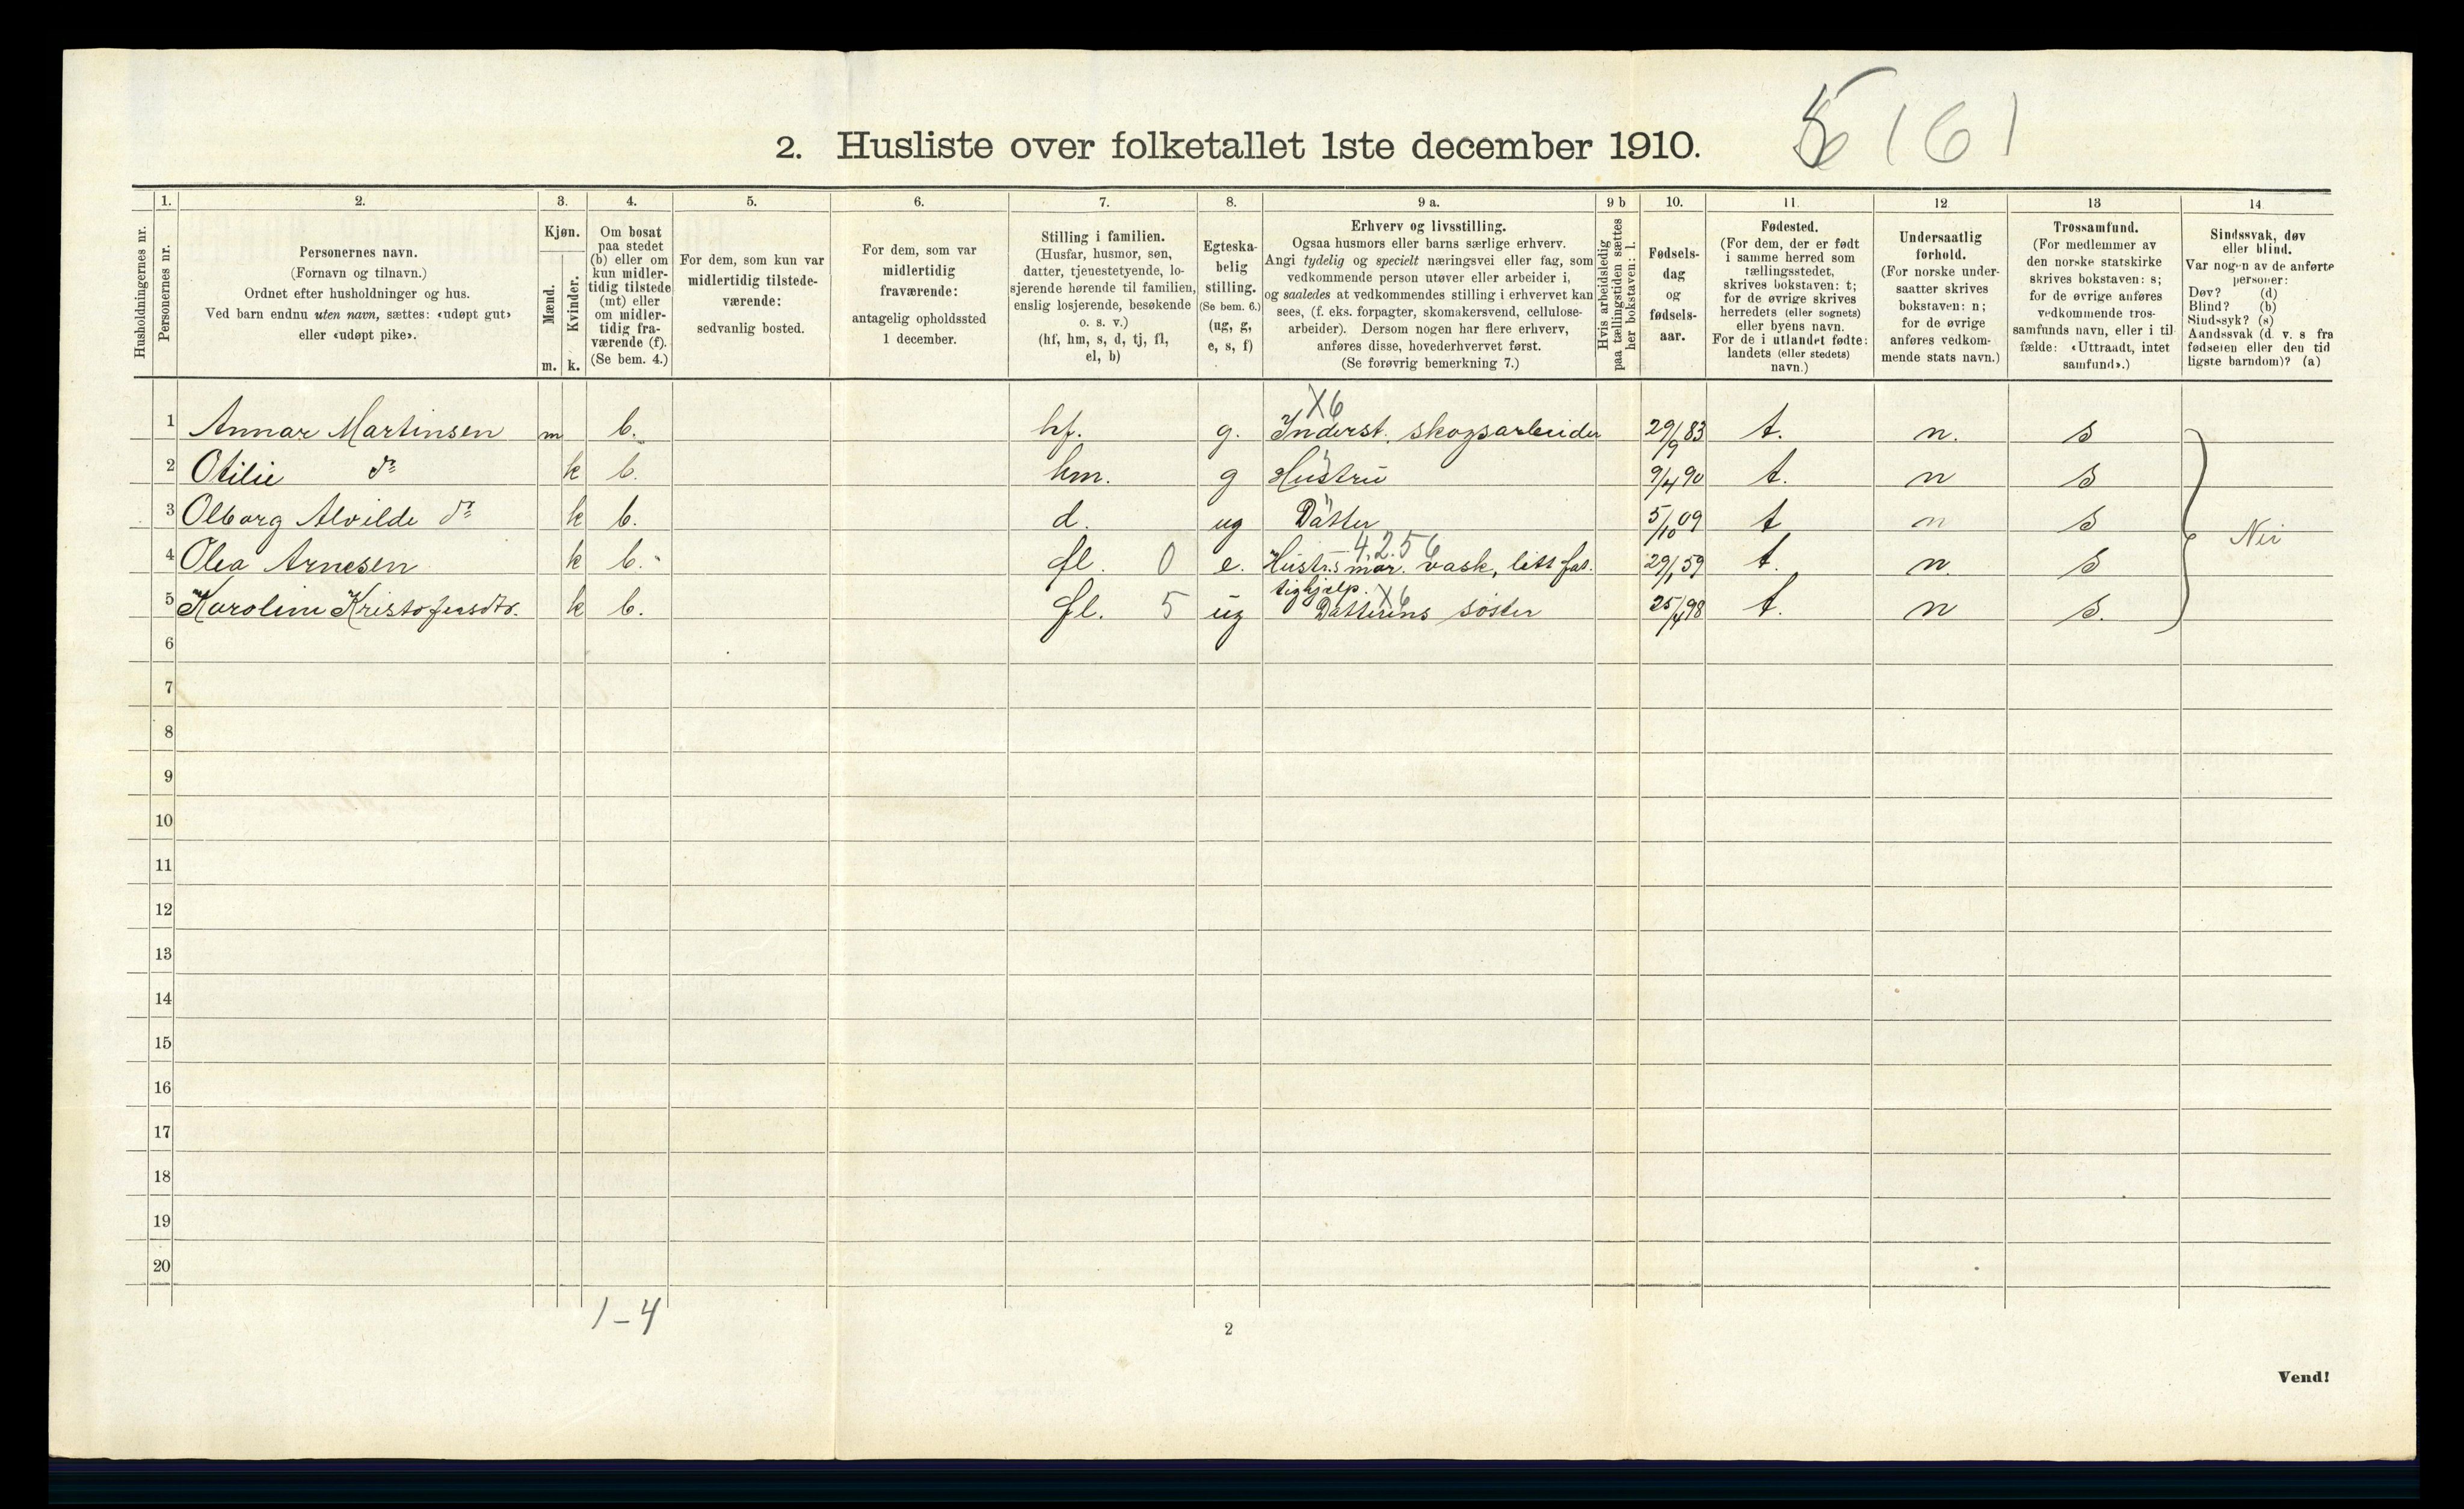 5 161
2. Husliste over folketallet 1ste december 1910.
Husholdningernes nr.
1. Personernes nr.
2. Personernes navn.
(Fornavn og tilnavn.)
Ordnet efter husholdninger og hus.
Ved barn endnu uten navn, sættes: «udøpt gut»
eller «udøpt pike».
3. Kjøn.
Mænd. Kvinder.
m. k.
4. Om bosat
paa stedet
(b) eller om
kun midler-
tidig tilstede
(mt) eller
om midler-
tidig fra-
værende (f).
(Se bem. 4.)
5. For dem, som kun var
midlertidig tilstede-
værende:
sedvanlig bosted.
6. For dem, som var
midlertidig
fraværende:
antagelig opholdssted
1 december.
7. Stilling i familien.
(Husfar, husmor, søn,
datter, tjenestetyende, lo-
sjerende hørende til familien,
enslig losjerende, besøkende
o. s. v.)
(hf, hm, s, d, tj, fl,
el, b)
8. Egteska-
belig
stilling.
(Se bem. 6.)
(ug, g,
e, s, f)
9 a. Erhverv og livsstilling.
Ogsaa husmors eller barns særlige erhverv.
Angi tydelig og specielt næringsvei eller fag, som
vedkommende person utøver eller arbeider i,
og saaledes at vedkommendes stilling i erhvervet kan
sees, (f. eks. forpagter, skomakersvend, cellulose-
arbeider). Dersom nogen har flere erhverv,
anføres disse, hovederhvervet først.
(Se forøvrig bemerkning 7.)
9 b Hvis arbeidsledig
paa tællingstiden sættes
her bokstaven: l.
10. Fødsels-
dag
og
fødsels-
aar.
11. Fødested.
(For dem, der er født
i samme herred som
tællingsstedet,
skrives bokstaven: t;
for de øvrige skrives
herredets (eller sognets)
eller byens navn.
For de i utlandet fødte:
landets (eller stedets)
navn.)
12 Undersaatlig
forhold.
(For norske under-
saatter skrives
bokstaven: n;
for de øvrige
anføres vedkom-
mende stats navn.)
13 Trossamfund.
(For medlemmer av
den norske statskirke
skrives bokstaven: s;
for de øvrige anføres
vedkommende tros-
samfunds navn, eller i til
fælde: «Uttraadt, intet
samfund».)
14 Sindssvak, døv
eller blind.
Var nogen av de anførte
personer:
Døv? (d)
Blind? (b)
Sindssyk? (s)
Aandssvak (d. v. s fra
fødselen eller den tid
ligste barndom)? (a)
X6
1 Annar Martinsen m b. hf. g. Inderst. skogsarbeider 29/9 83 t. n. s
2 Otilie do k b. hm. g Hustru 9/4 90 t. n s
3 Olborg Alvilde do k b. d. ug Datter 5/10 09 t n s
4.2.56
4 Olea Arnesen k b. fl. 0 e. Hustr.s mor. vask, litt fat. 29/1 59 t. n. s
tighjælp. X6
5 Karoline Kristofersdtr. k b. fl. 5 ug Datterens søster 25/4 98 t. n s.
Nei
6
7
8
9
10
11
12
13
14
15
16
17
18
19
20
1-4
2
Vend!